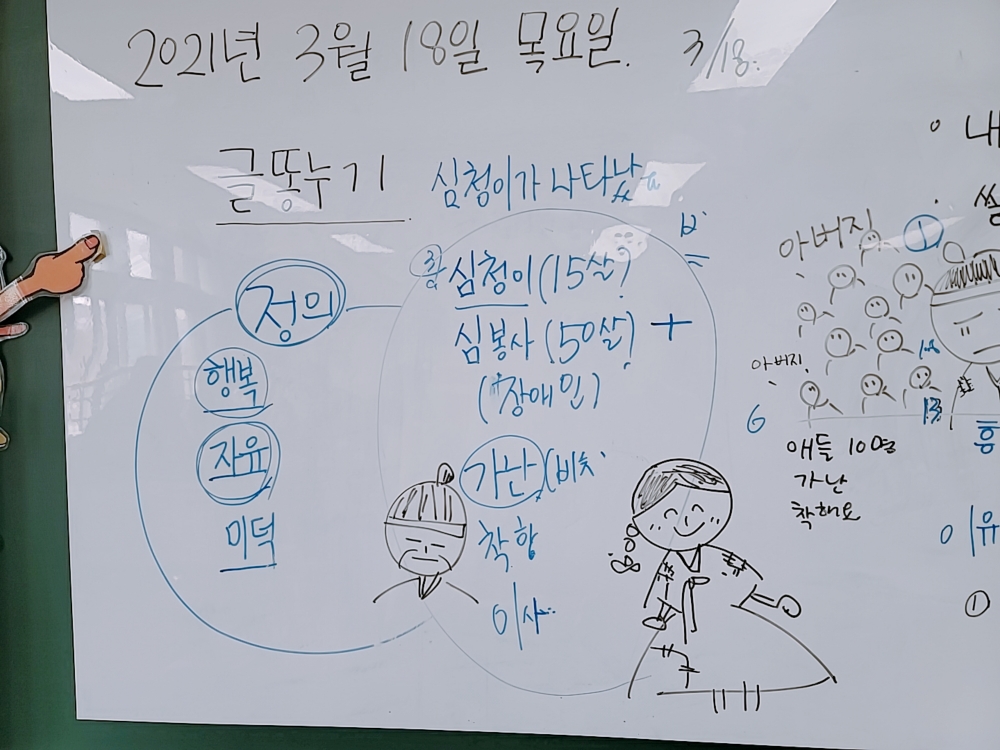 2021년 3월 18일 목요일. 3/18.
글똥누기
심청이가 나타났
정의
행복
자유
미덕
심청이 (15살)
심봉사 (50살) +
장애인)
가난
착함
이사
아버지 ①
아버지
6
13
애들 10명
가난
착해요
내
흥
이유
①